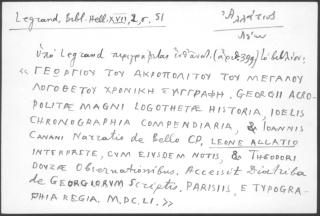 Legrand, Bibl. Hell. XVII, 2, σ. 51
Ἀλλάτιος
Λέων
ὑπὸ Legrand περιγράφεται ἐνταῦθα (ἀριθ. 399) τὸ βιβλίον:
« ΓΕΩΡΓΙΟΥ ΤΟΥ ΑΚΡΟΠΟΛΙΤΟΥ ΤΟΥ ΜΕΓΑΛΟΥ
ΛΟΓΟΘΕΤΟΥ ΧΡΟΝΙΚΗ ΣΥΓΓΡΑΦΗ. GEORGII ACRO-
POLITÆ MAGNI LOGOTHETÆ HISTORIA, IOELIS
CHRONOGRAPHIA COMPENDIARIA, & IOANNIS
CANANI Narratio de Bello CP, LEONE ALLATIO
INTERPRETE, CVM EIVSDEM NOTIS, & THEODORI
DOVZÆ Observationibus. Accessit Diatriba
de GEORGIORVM Scriptis. PARISIIS, E TYPOGRA-
PHIA REGIA. M.DC.LI. »